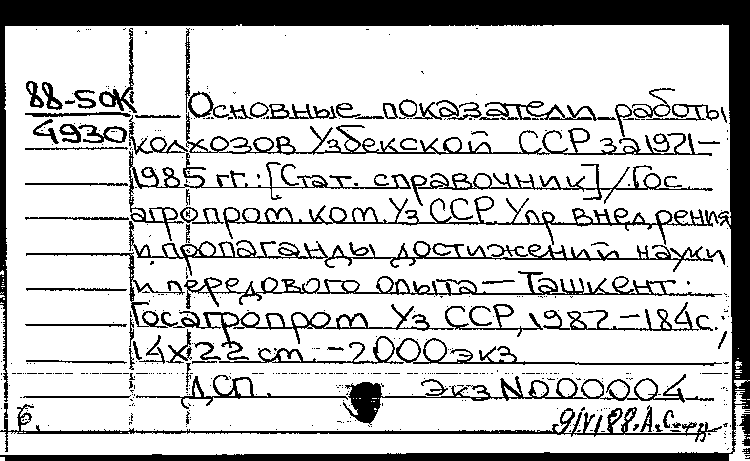 88-50К
4930
Основные показатели работы
колхозов Узбекской ССР за 1971–
1985 гг.: [Стат. справочник] / Гос
агропром. ком. Уз ССР. Упр внедрения
и пропаганды достижений науки
и передового опыта — Ташкент:
Госагропром Уз ССР, 1987. – 184с.;
14х22 см. – 2000 экз.
ДСП. Экз N 000004
б. 9/VI 88.